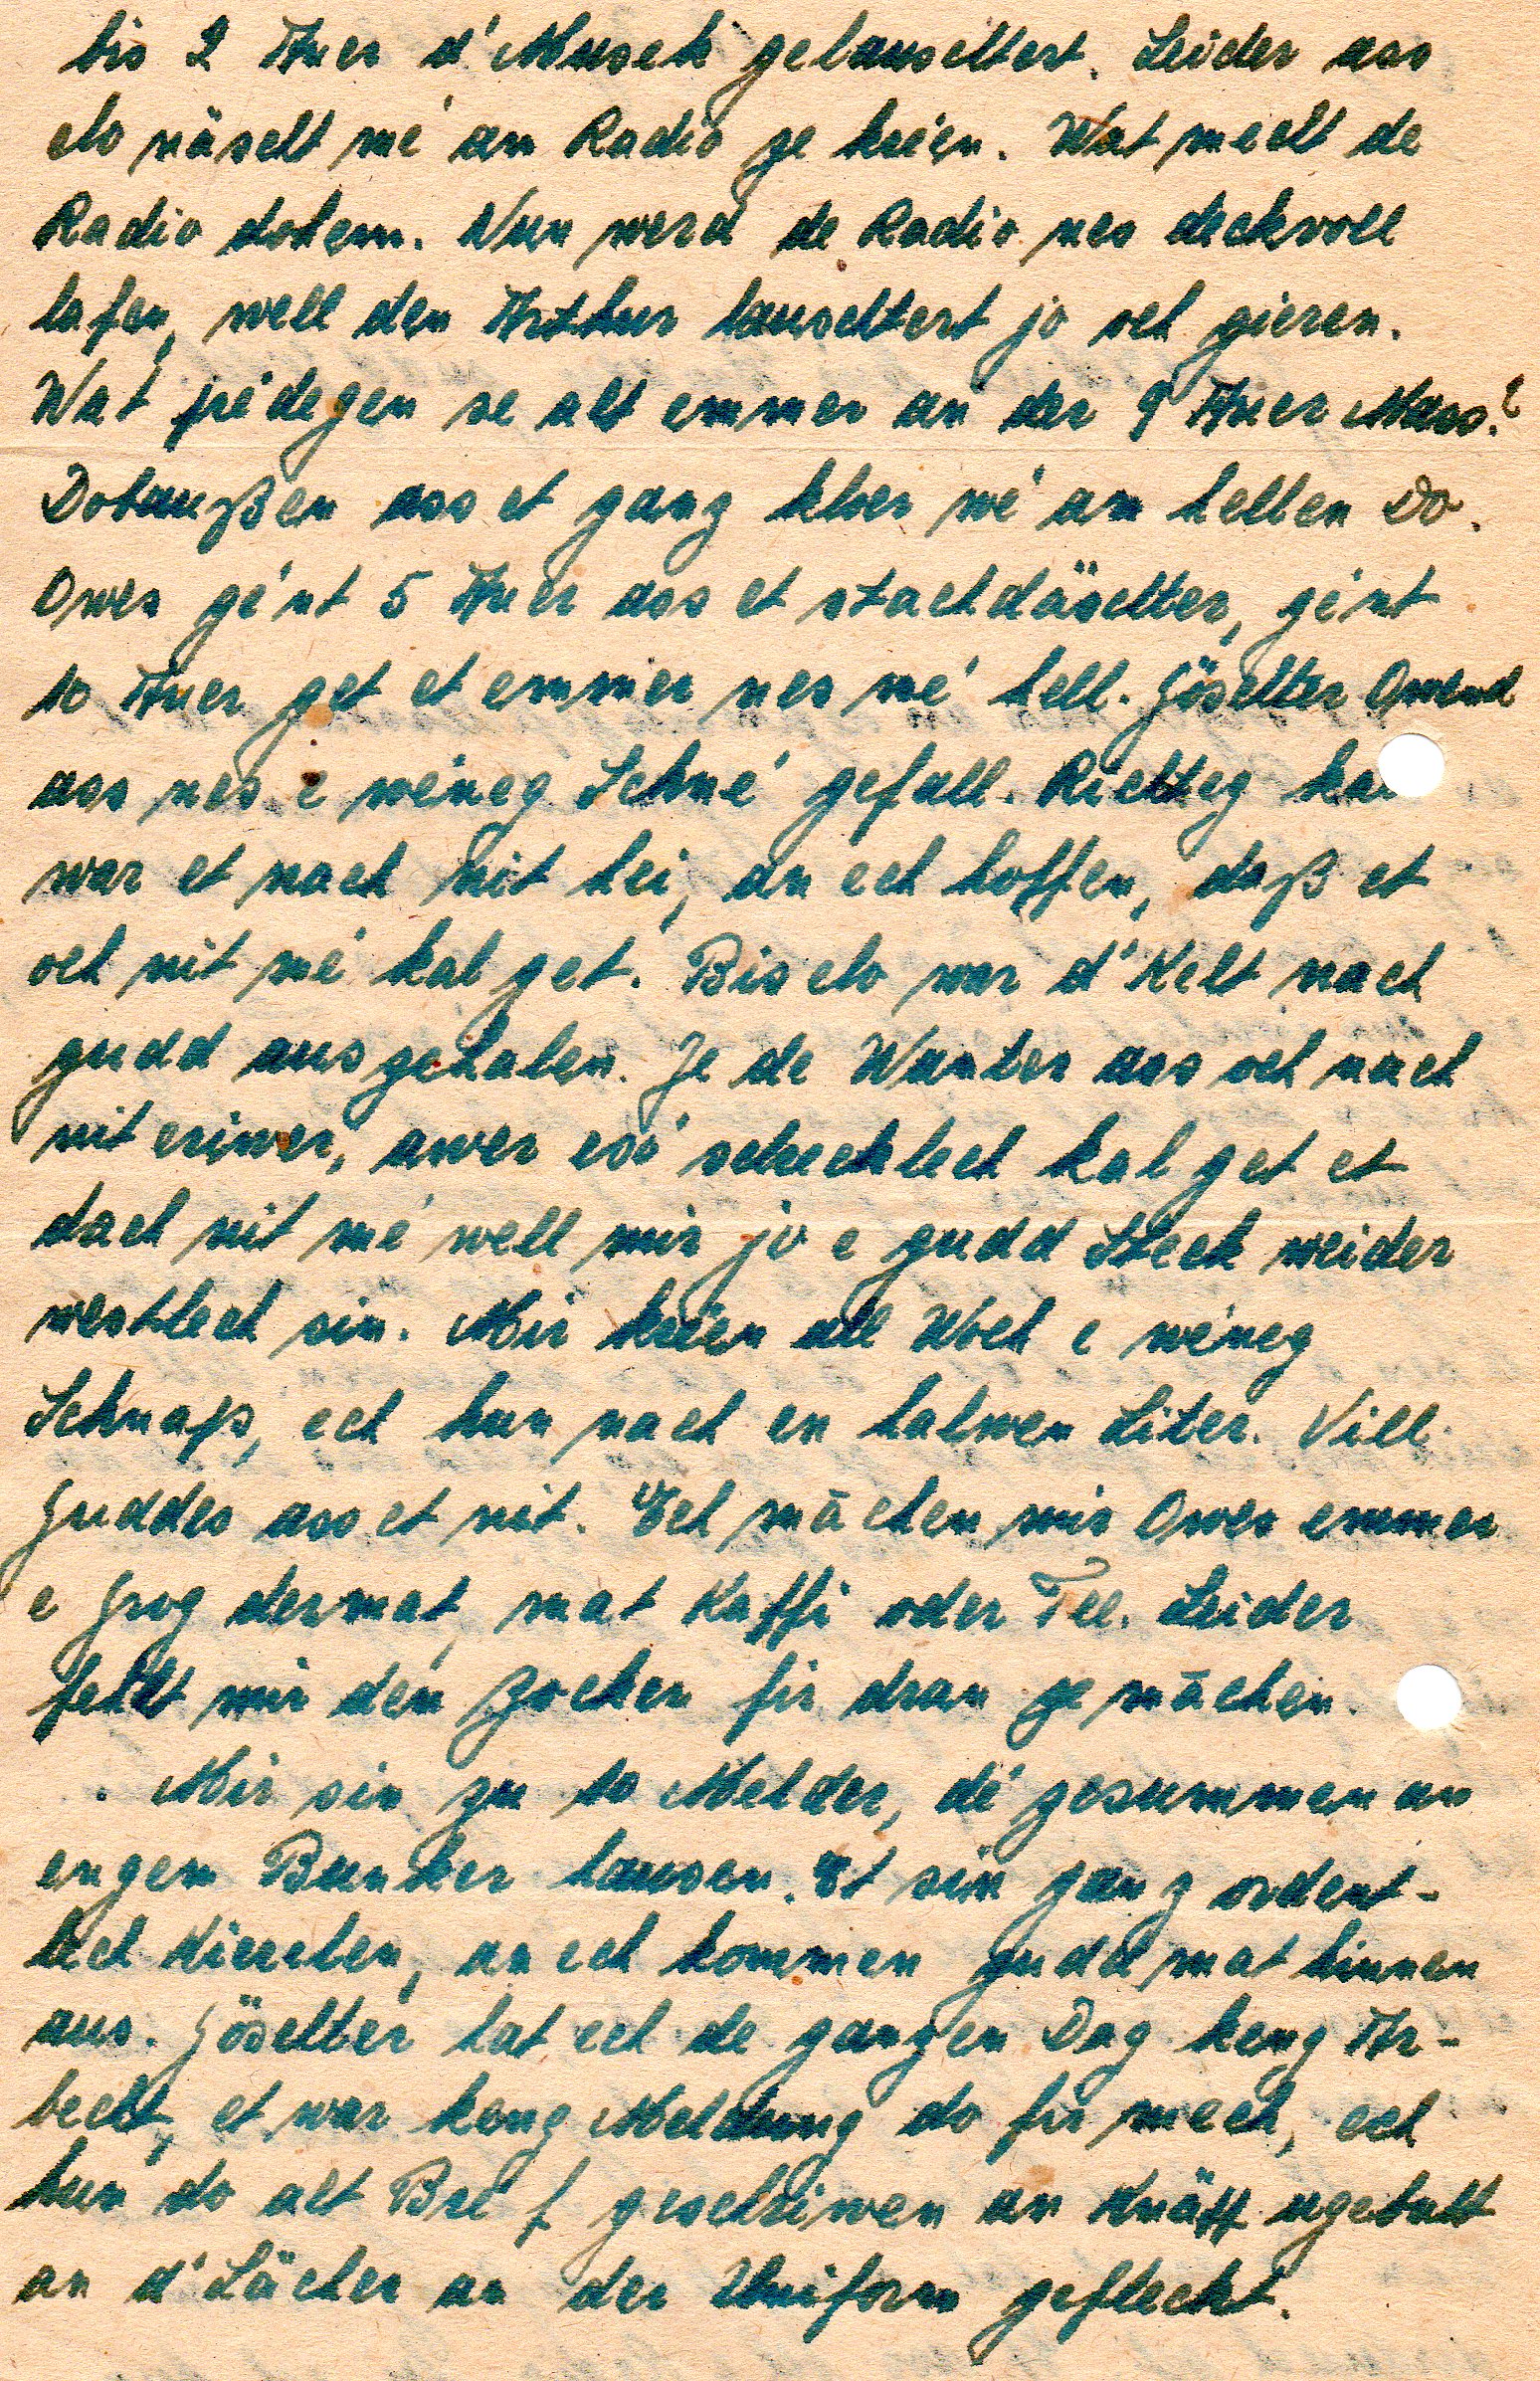 bis 2 Auer d'Musek gelauschtert. Leider ass
elo näscht mé an Radio ze kréen. Wat mecht de
Radio dohem. Nun werd de Radio nes deckvoll
lafen, well den Arthur lauschtert jo och gieren.
Wat priédegen se alt emmer an der 9 Auer Mass?
Dobaußen ass et ganz kloer wé am hellen Do.
Owes gént 5 Auer ass et stachdäschter, gént
10 Auer get et emmer nes mé hell. Göschter Owend
ass nes e wéneg Schné gefall. Richteg ka
war et nach nit hei, an ech hoffen, daß et
och nit mé kal get. Bis elo war d'Kelt nach
gudd auszehalen. Je de Wanter ass och nach
nit eriwer, awer esó schrecklech kal get et
dach nit mé well mir jo e gudd Steck weider
westlech sin. Mir kréen all Woch e wéneg
Schnaps, ech hun nach en halwen Liter. Vill
Guddes ass et nit. Ech mächen mir Owes emmer
e Grog dermat, mat Kaffi oder Tee. Leider
fehlt mir den Zocker fir dran ze mächen.
Mir sin zu 10 Melder, dé zesummen an
engem Bunker hausen. Et sin ganz ordent-
lech Kierelen, an ech kommen gudd mat hinnen
aus. Göschter hat ech de ganzen Dag keng Ar-
becht, et war keng Meldung do fir mech, ech
hun do alt Bréf geschriwen an Knäpp ugebutt
an d'Lächer an der Uniform gefleckt.